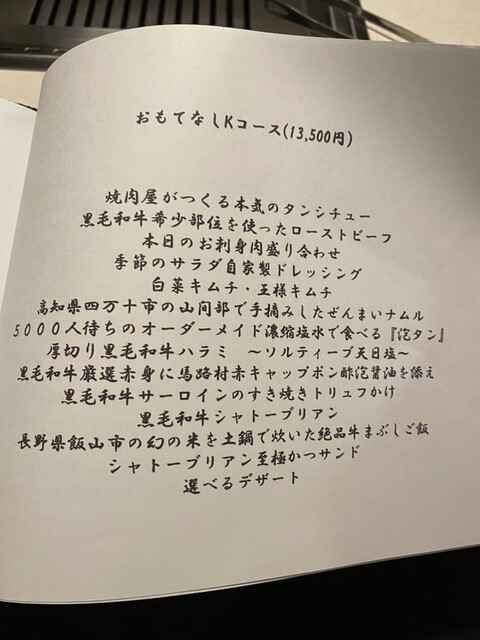 おもてなしKコース(13,500円)
焼肉屋がつくる本気のタンシチュー
黒毛和牛希少部位を使ったローストビーフ
本日のお刺身肉盛り合わせ
季節のサラダ自家製ドレッシング
白菜キムチ・王様キムチ
高知県四万十市の山間部で手摘みしたぜんまいナムル
5000人待ちのオーダーメイド濃縮塩水で食べる『泡タン』
厚切り黒毛和牛ハラミ ～ソルティーブ天日塩～
黒毛和牛厳選赤身に馬路村赤キャップポン酢泡醤油を添え
黒毛和牛サーロインのすき焼きトリュフかけ
黒毛和牛シャトーブリアン
長野県飯山市の幻の米を土鍋で炊いた絶品牛まぶしご飯
シャトーブリアン至極かつサンド
選べるデザート